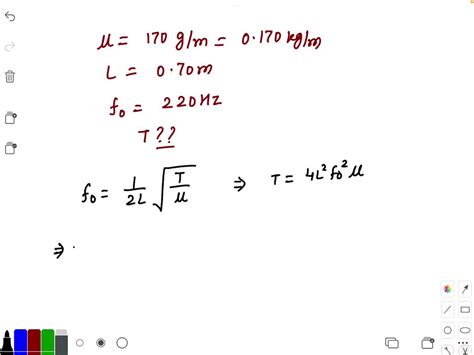 μ = 170 g/m = 0.170 kg/m
L = 0.70m
f₀ = 220Hz
T ??
f₀ = 1/2L √T/μ ⇒ T = 4L²f₀²μ
⇒